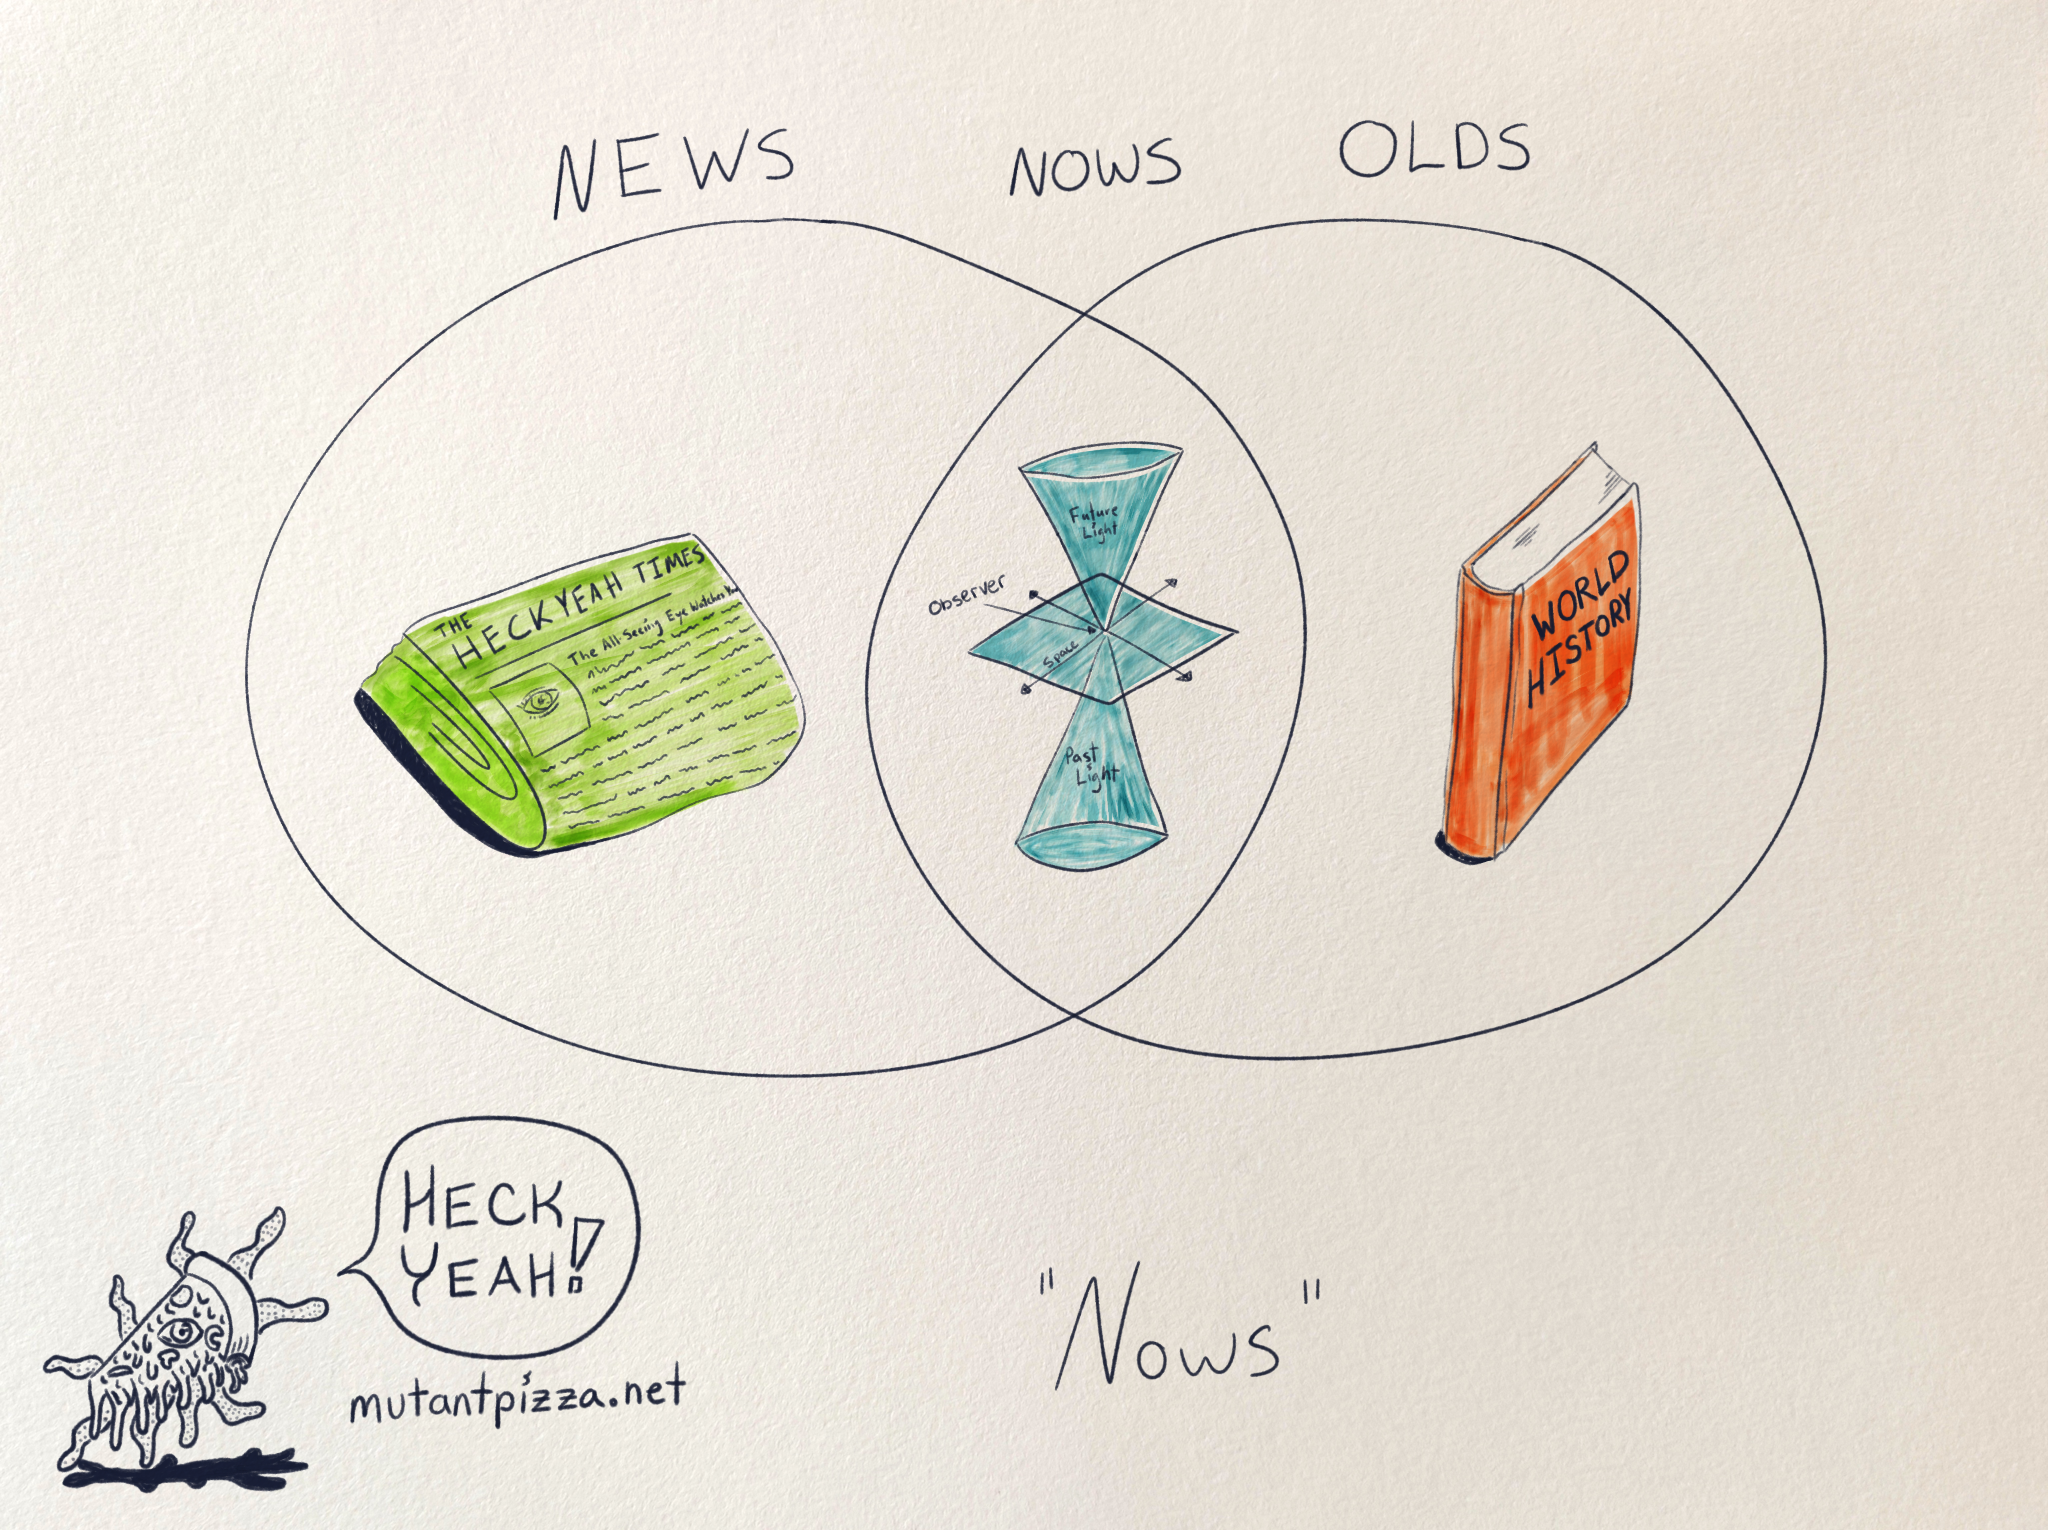 NEWS
NOWS
OLDS
THE
HECK YEAH TIMES
The All-Seeing Eye Watches
Future
Light
Observer
Space
Past
Light
WORLD
HISTORY
HECK
YEAH!
mutantpizza.net
"Nows"